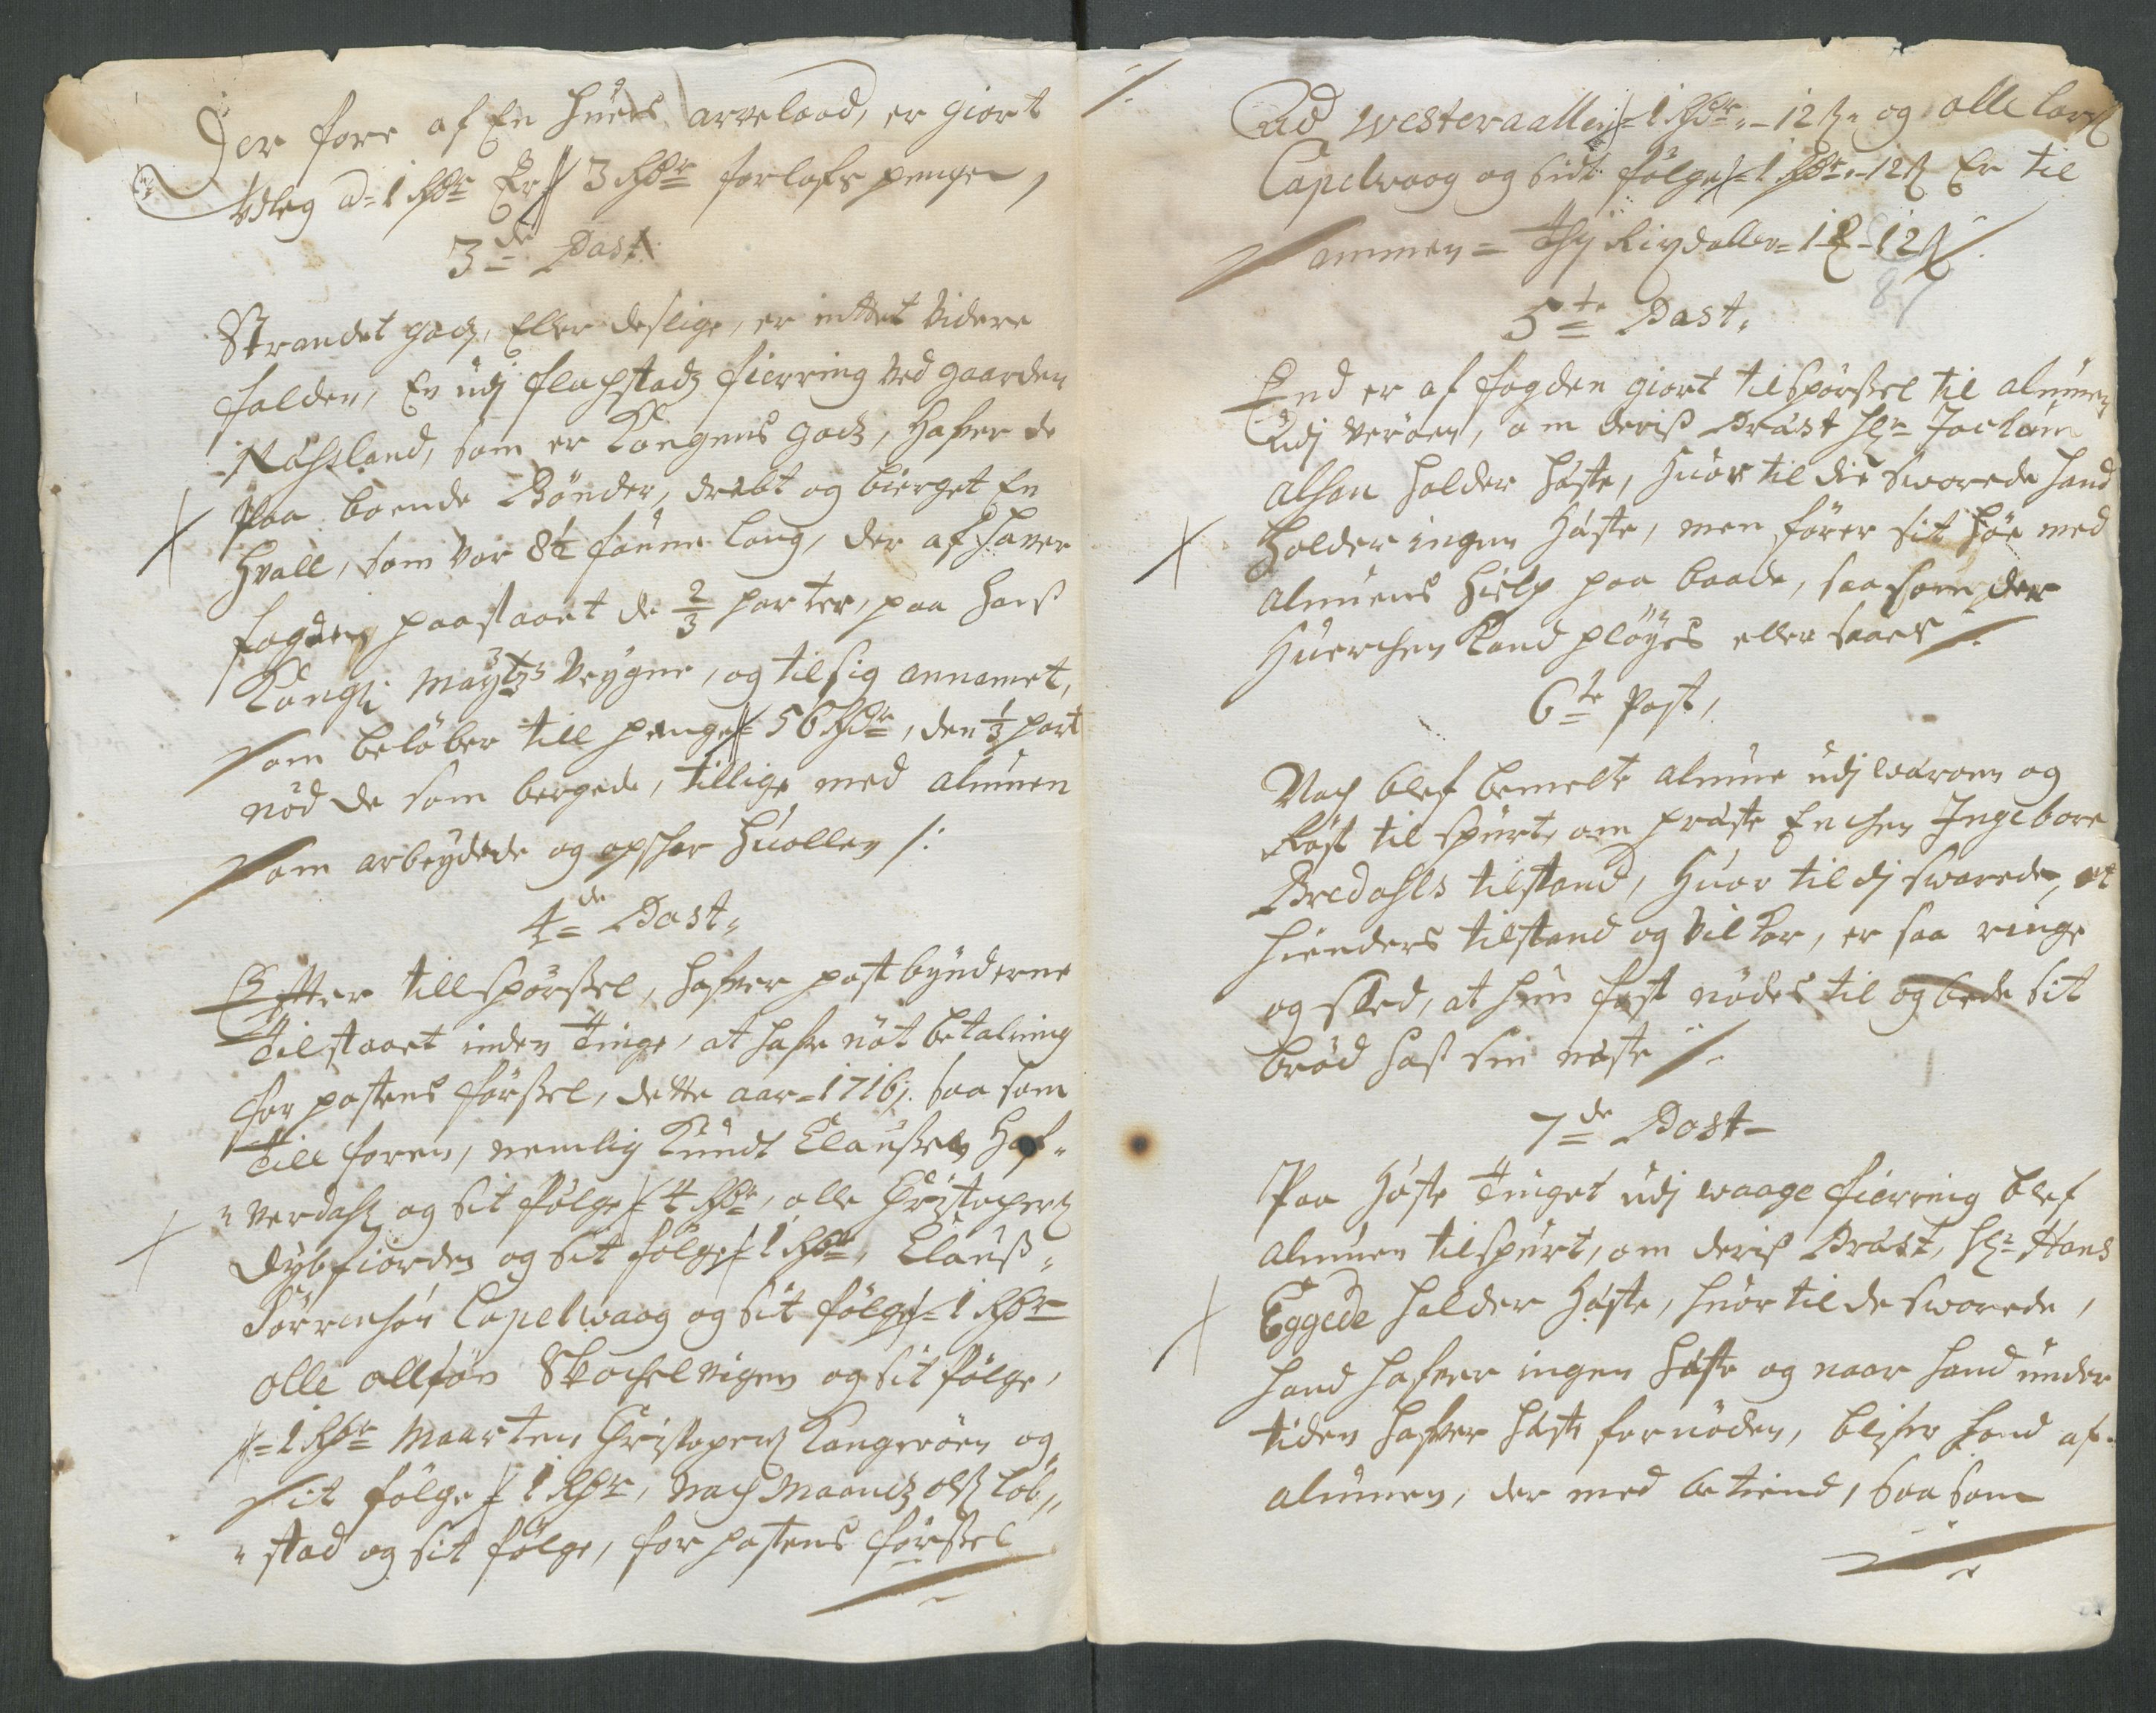 Der fore af En huers arvelaad, er giort
Udleg a = 1 Rdr Er 3 Rdr forlofs penge,
3de Post
Strandet godz, Eller deslige, er inttet videre
falden, En udj flachstadz fierring ved gaarden
Nøstland, som er Kongens godz, hafver de
Paa boende Bønder, drebt og bierget En
Hvall, som var 8½ faune lang, der af haver
fogden paastaaet de 2/3 parter, paa hans
Kongl: Maytz Veygne, og til sig annamet,
som beløber till penge 56 Rdr, den 1/3 part
nød de som bergede, tillige med almuen
som arbeydede og opskar Huallen /:
4de Post
Effter tillspørssel, hafver postbynderne
Tilstaaet inden Tinge, at hafve nøt betalning
for postens førssel, dette aar = 1716: saa som
Till foren, nemlig Knudt Claussen Haf-
verdahl og sit følge = 4 Rdr, olle Christophers
Dybfiorden og sit følge = 1 Rdr, Clauss
Sørrensøn Capelwaag og sit følge = 1 Rdr
olle ollsøn Skochelvigen og sit følge,
= 1 Rdr Maarten Christopers Kangerøen og
sit følge = 1 Rdr, nach Maandz ols Løb-
stad og sit følge, for postens førssel
/.
Ud Westeraallen = 1 Rdr - 12 ß og olle Lars
Capelvaag og sidt følge = 1 Rdr - 12 ß Er til
sammen = Thj Rixdaller = 1 - 12 ß /.
87
5te Post
End er af fogden giort tilspørssel til almuen
Udj verøen, om deris Præst Hr Jochum
alsen holder Hæste, huor til die svorede hand
holder ingen Hæste, men fører sit høe med
almuens hielp paa baade, saa som der
Huerchen Kand pløyes eller saaes /.
6te Post,
Nach blef bemelte almue udj Wærøen og
Røst tilspurt, om præste Enchen Ingebore
Bredahls tilstand, Huor til dj svarede, at
hienders tilstand og vilkor, er saa ringe
og slæd, at hun fast nødes til og bede sit
brød hoss sin næste /.
7de Post
Paa Høste Tinget udj waage fierring blef
almuen tilspurt, om deris Præst, Hr Hans
Eggede holder Hæste, huor til de svorede,
hand hafver ingen Hæste og naar hand under
tiden hafver hæste fornøden, blifver hand af
almuen, der med betiend, saa som